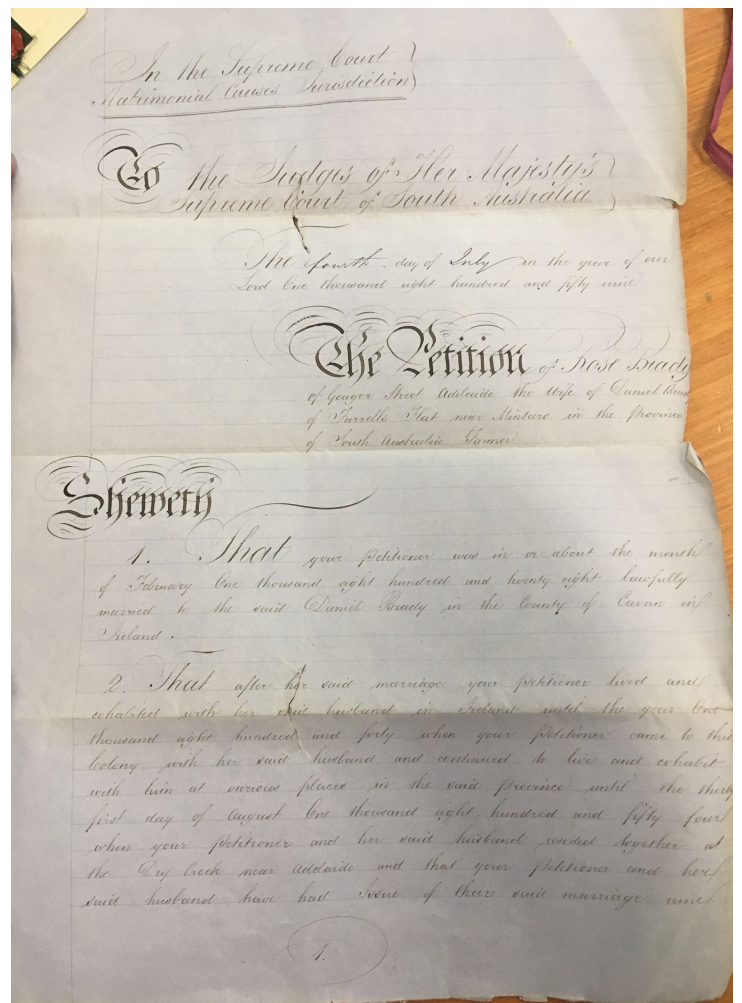 In the Supreme Court
Matrimonial Causes Jurisdiction
To the Judges of Her Majesty's
Supreme Court of South Australia
The fourth day of July in the year of our
Lord One thousand eight hundred and fifty nine
The Petition of Rose Brady
of Gouger Street Adelaide the Wife of Daniel Brady
of Farrells Flat near Mintaro in the Province
of South Australia Farmer
Sheweth
1. That your Petitioner was in or about the month
of February One thousand eight hundred and twenty eight lawfully
married to the said Daniel Brady in the County of Cavan in
Ireland.
2. That after her said marriage your Petitioner lived and
cohabited with her said husband in Ireland until the year One
thousand eight hundred and forty when your Petitioner came to this
Colony with her said husband and continued to live and cohabit
with him at various places in the said Province until the thirty
first day of August One thousand eight hundred and fifty four
when your Petitioner and her said husband resided together at
the Dry Creek near Adelaide and that your Petitioner and her
said husband have had Issue of their said marriage nine
1.